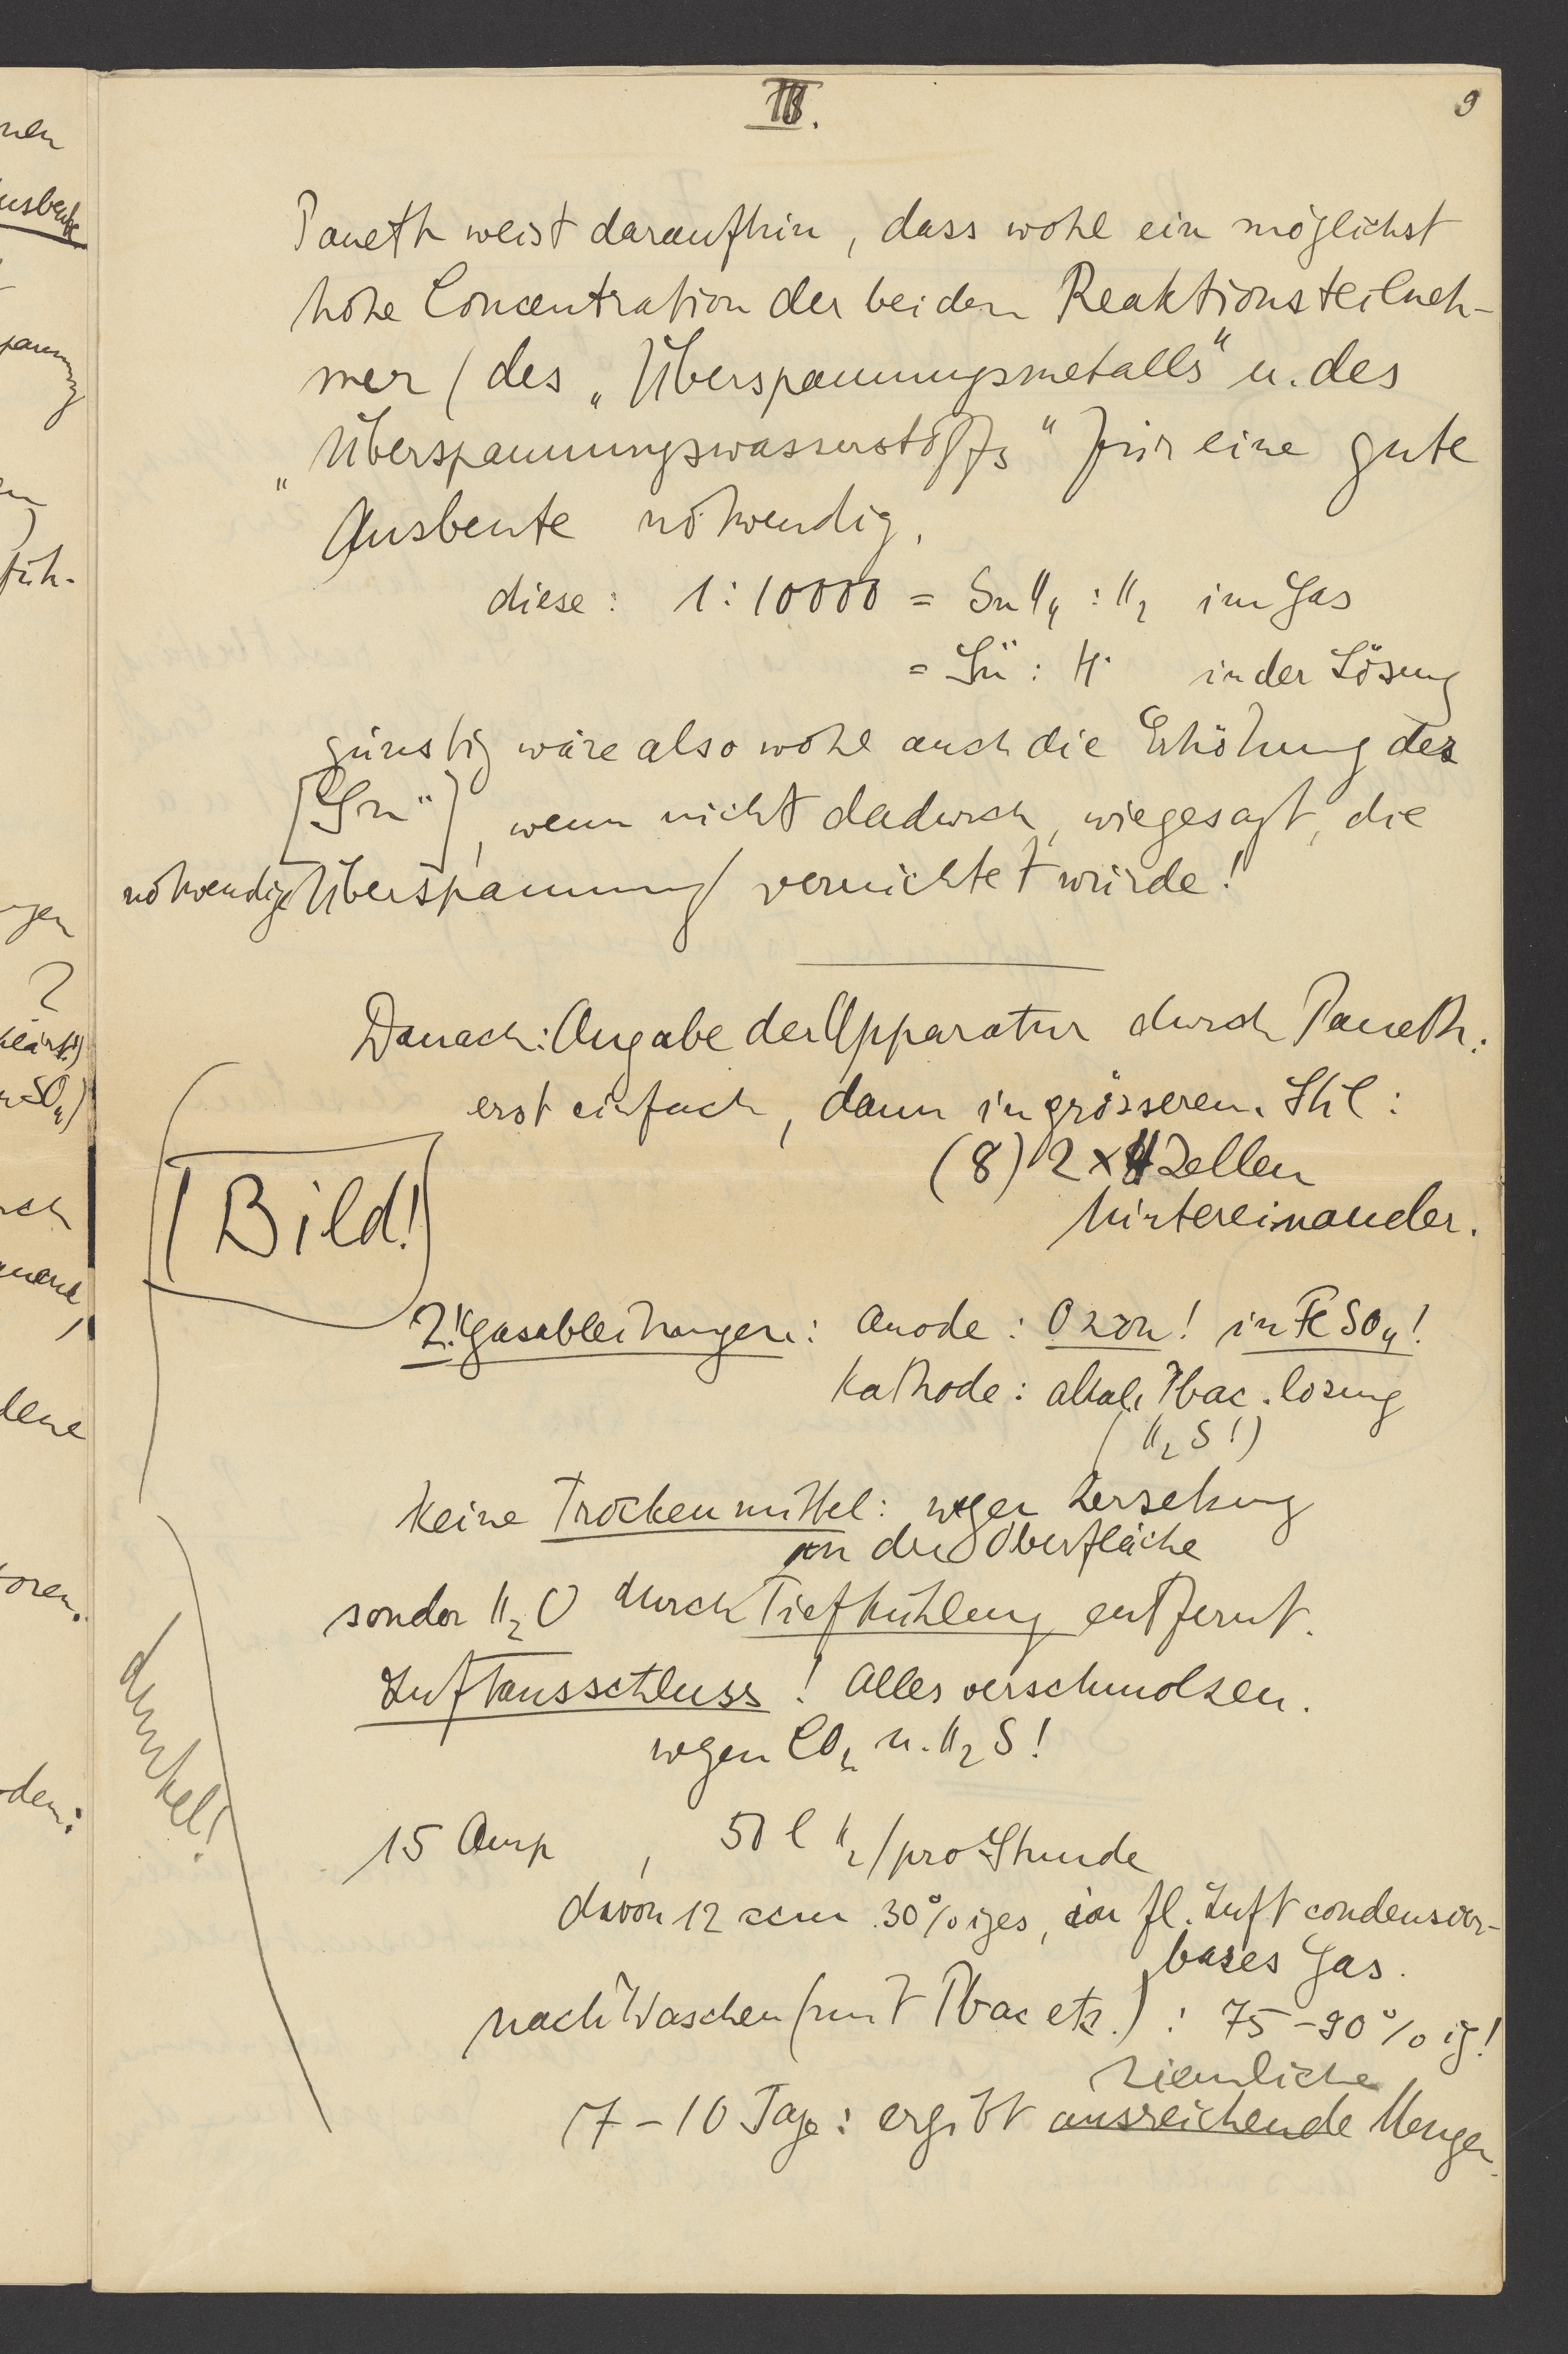 III.
9
Paneth weist daraufhin, dass wohl ein möglichst
hohe Concentration der beiden Reaktionsteilneh-
mer (des „Überspannungsmetalls“ u. des
„Überspannungswasserstoffs“ für eine gute
Ausbeute nötwendig.
diese: 1:10000 = SnH4 : H2 im Gas
= Sn¨ : H· in der Lösung
günstig wäre also wohl auch die Erhöhung der
[Sn¨], wenn nicht dadurch, wiegesagt, die
notwendige Überspannung vernichtet würde!
Danach: Angabe der Apparatur durch Paneth:
erst einfach, dann in grösserem Stil:
(8) 2 x 4 Zellen
hintereinander.
Bild!
2! Gasableitungen: Anode: Ozon! in FeSO4!
Kathode: alkal. Pbac. lösung
(H2S!)
Keine Trockenmittel: wegen Zersetzung
an der Oberfläche
sonder H2O durch Tiefkühlung entfernt.
Luftausschluss! Alles verschmolzen.
wegen CO2 u. H2S!
dunkel!
15 Amp, 50 l H2/pro Stunde
davon 12 ccm 30%iges, in fl. Luft condensier-
bares Gas.
nach Waschen (mit Pbac etz.): 75-90%ig!
ziemliche
7-10 Tage: ergibt ausreichende Mengen